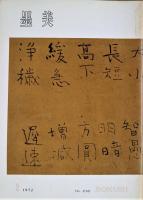 墨美
大小
長短
高下
緩急
浄穢
智愚
明暗
方圓
増減
遅速
1972
BOKUBI